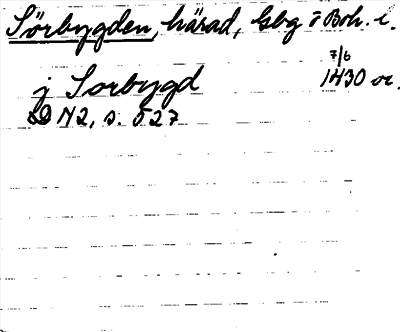 Sörbygden, härad, Gbg o Boh. l.
7/6
j Sorbygd 1430 or.
SD N2, s. 527